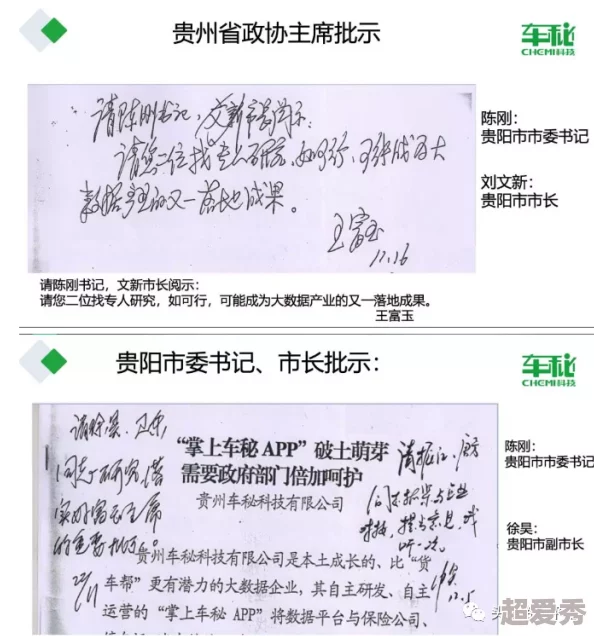 贵州省政协主席批示
车秘
CHEMI科技
请陈刚书记,文新市长阅示:
请您二位找专人研究,如可行,可能成为大
数据产业的又一落地成果。
王富玉
11.16
陈刚:
贵阳市市委书记
刘文新:
贵阳市市长
请陈刚书记,文新市长阅示:
请您二位找专人研究,如可行,可能成为大数据产业的又一落地成果。
王富玉
贵阳市委书记、市长批示:
车秘
CHEMI科技
请徐昊、
同志研究落
实好富玉主席
的重要批示。
22/11
“掌上车秘APP”破土萌芽
需要政府部门倍加呵护
贵州车秘科技有限公司
贵州车秘科技有限公司是本土成长的、比“货
车帮”更有潜力的大数据企业,其自主研发、自主
运营的“掌上车秘APP”将数据平台与保险公司、
12.5
陈刚:
贵阳市市委书记
徐昊:
贵阳市副市长
超爱秀